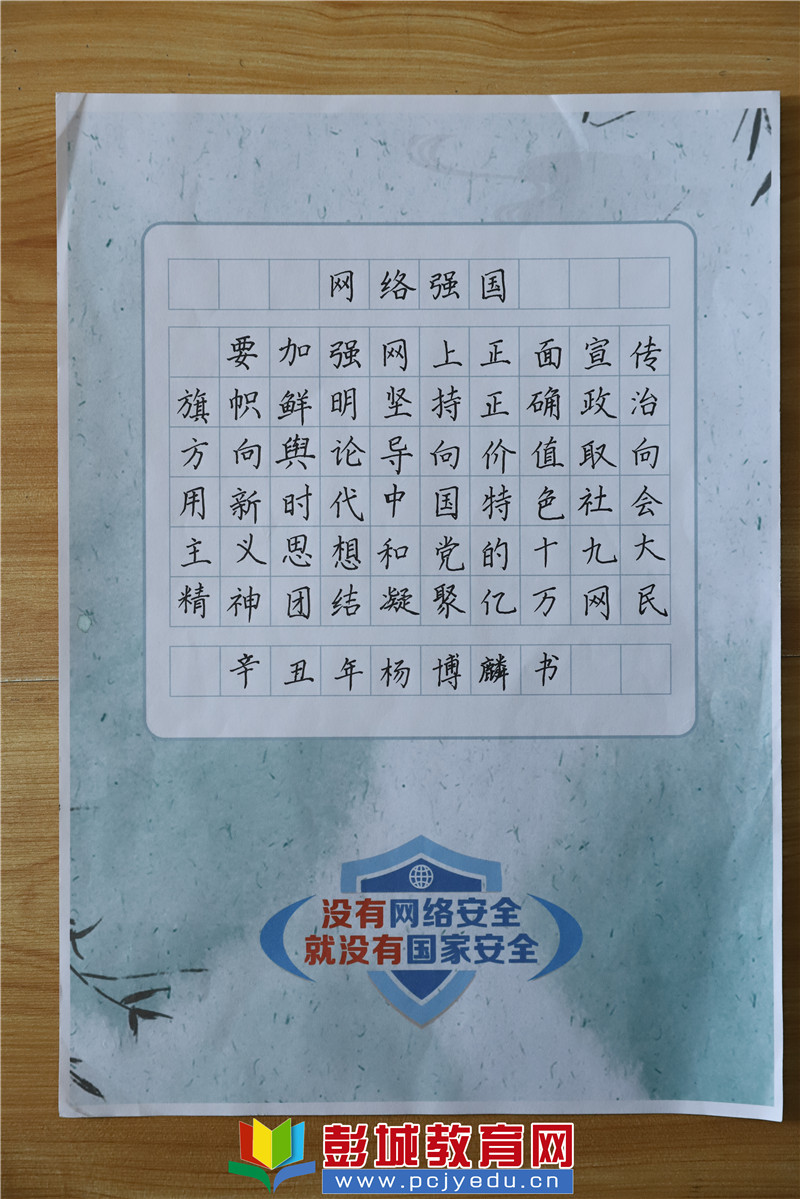 网络强国
要加强网上正面宣传
旗帜鲜明坚持正确政治
方向舆论导向价值取向
用新时代中国特色社会
主义思想和党的十九大
精神团结凝聚亿万网民
辛丑年杨博麟书
没有网络安全
就没有国家安全
彭城教育网
www.pcjyedu.cn